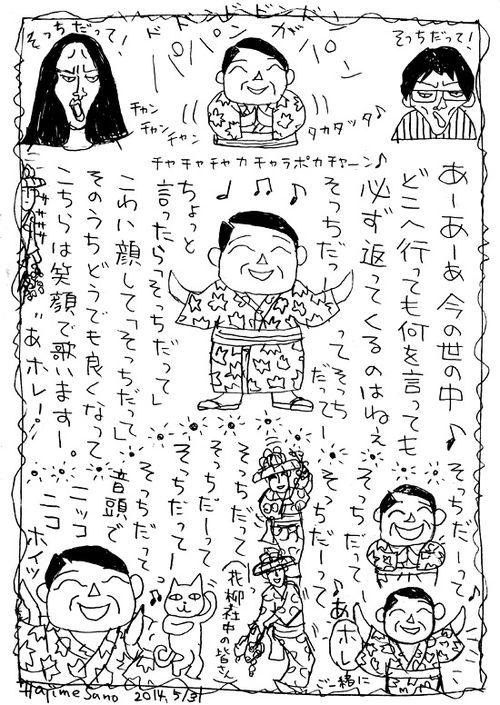 ドドンドドンド
パパンがパン
そっちだって!
そっちだって!
チャン
チャン
チャン
タカタッタ♪
チャチャチャカチャラポカチャーン♪
あーあーぁ今の世の中♪
どこへ行っても何を言っても
必ず返ってくるのはねぇ
そっちだってそっちだってー
ちょっと
言ったら「そっちだって」
こわい顔して「そっちだって」
そのうちどうでも良くなって
こちらは笑顔で歌いますー。
あホレー!
そっちだーって
そっちだってー
♪あホレ
ご一緒に
そっちだーって
そっちだってー
そっちだって
そっちだーって
そっちだってー
そっちだって
音頭で
ニッコ
ニコ
ホイッ
(花柳社中の皆さん)
Hajime Sano 2014.5/31